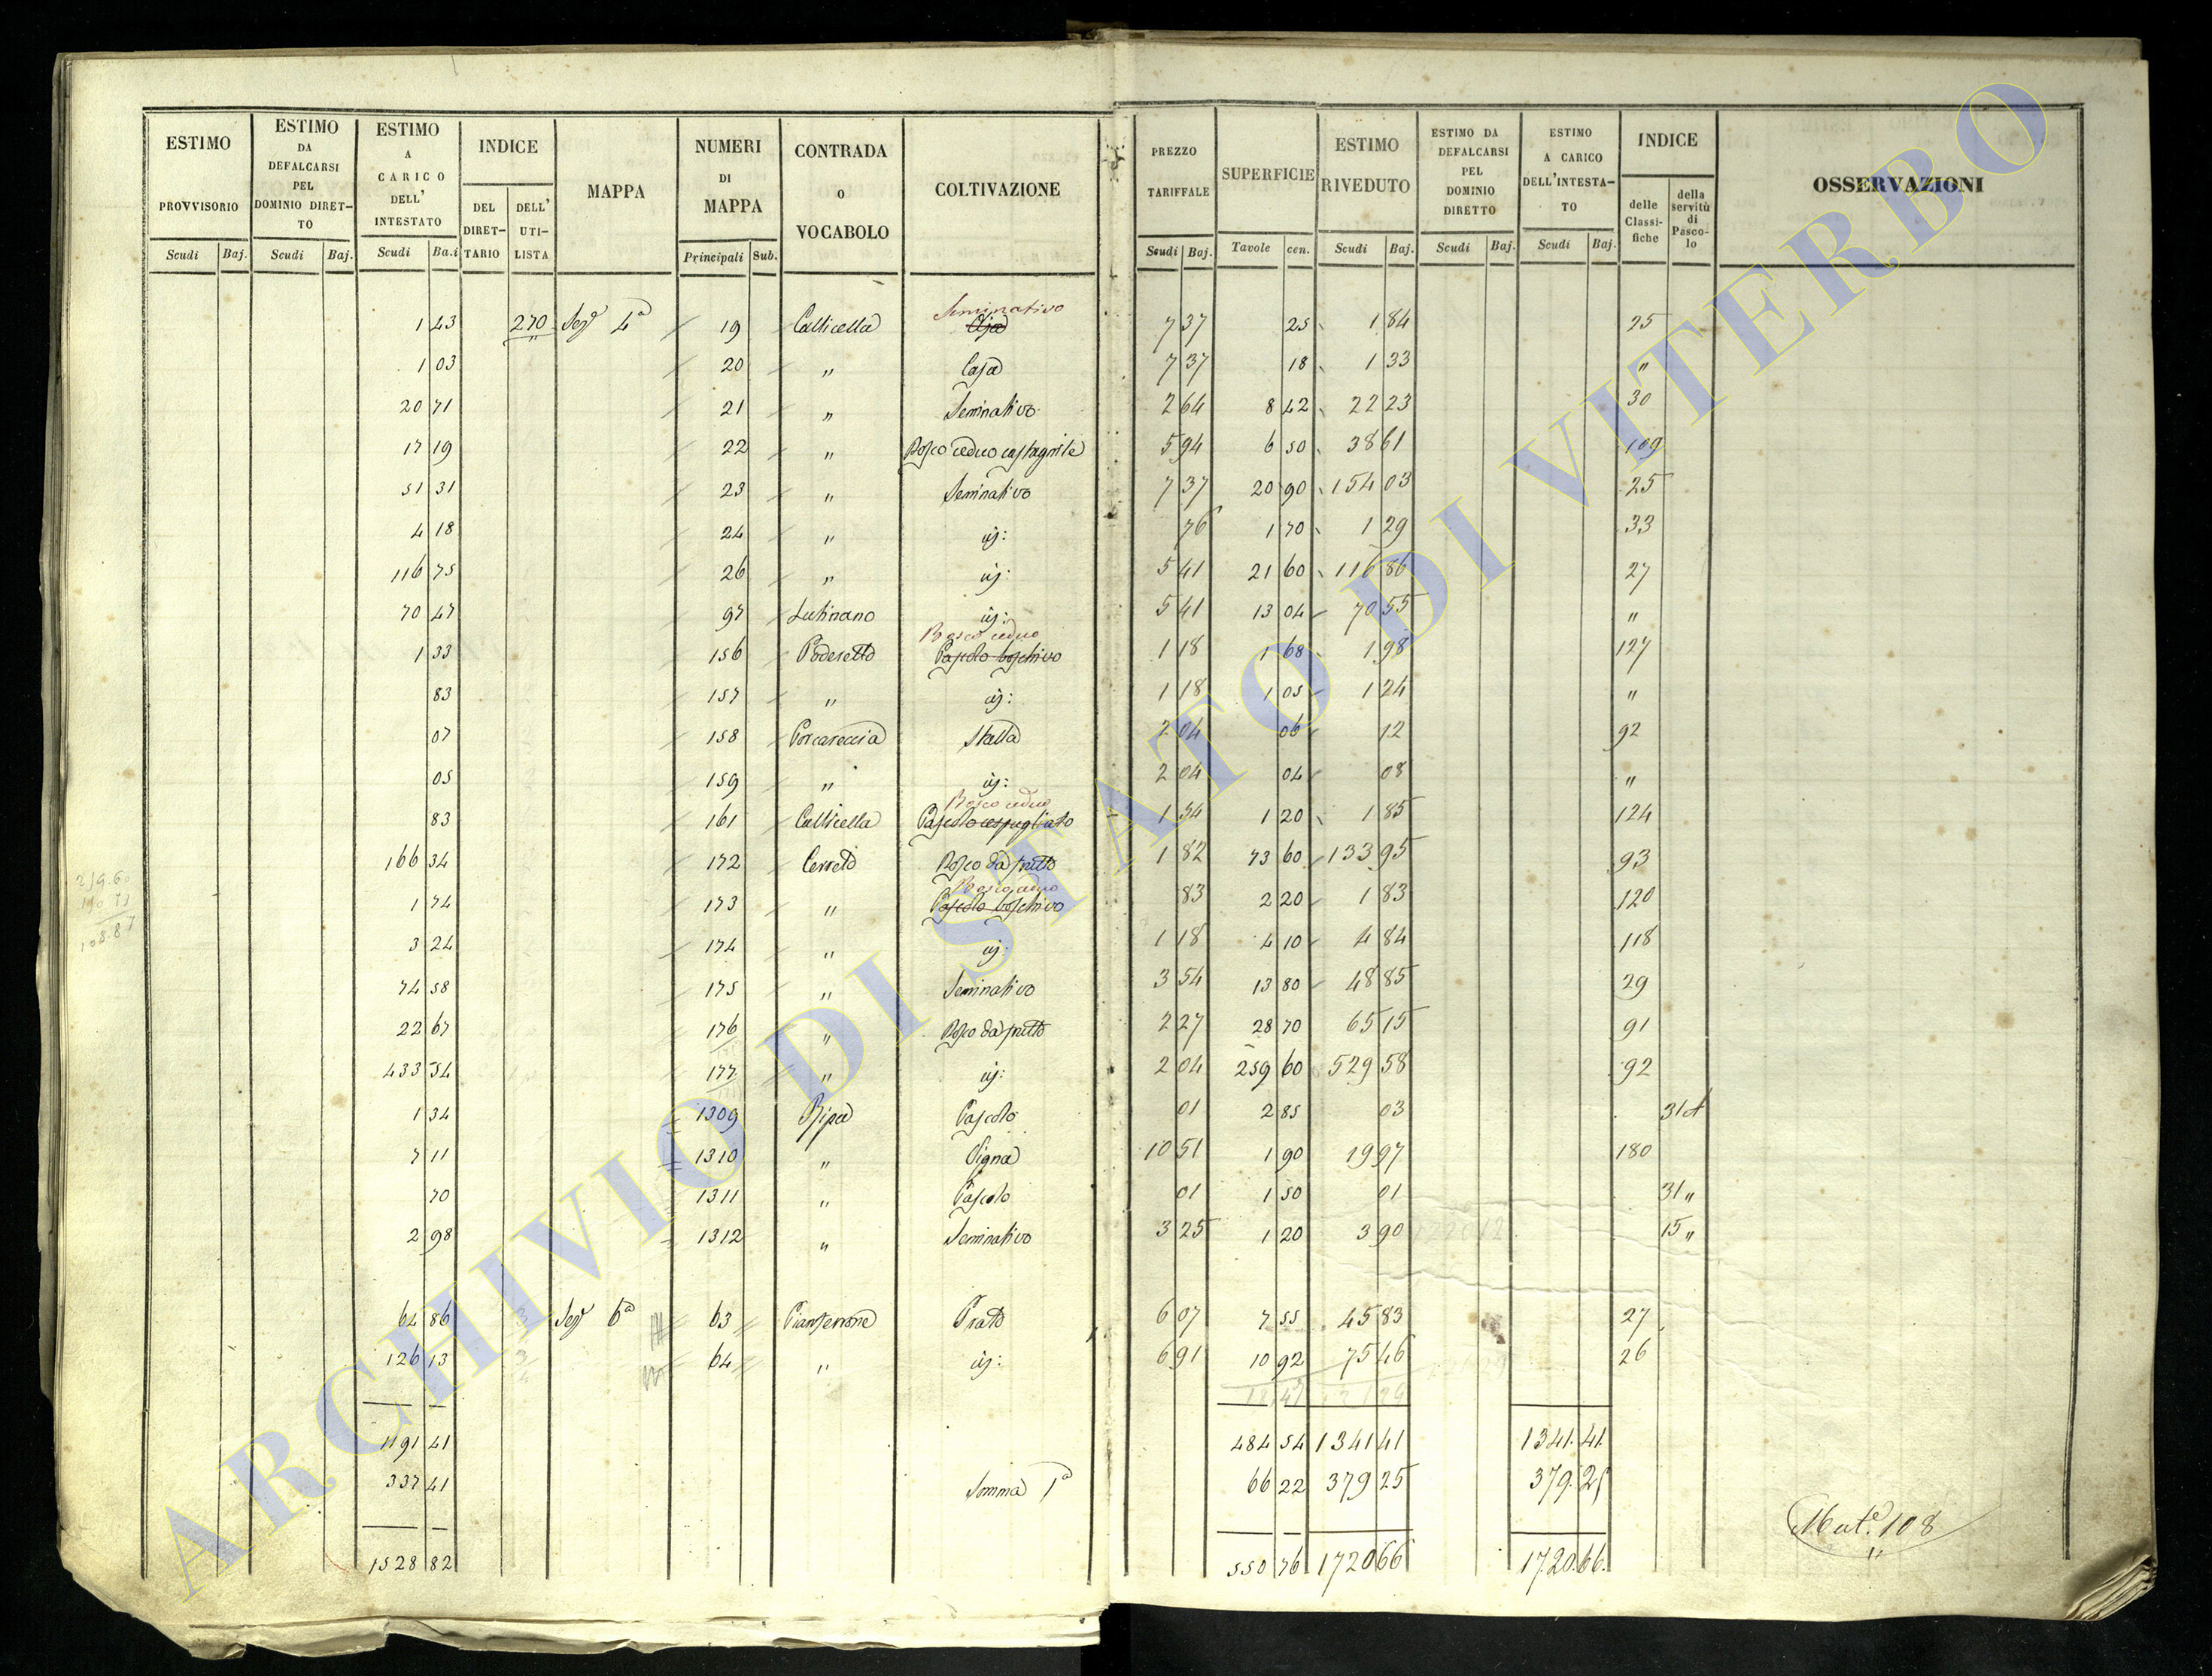 ESTIMO PROVVISORIO Scudi Baj.
ESTIMO DA DEFALCARSI PEL DOMINIO DIRETTO Scudi Baj.
ESTIMO A CARICO DELL' INTESTATO Scudi Ba.i
INDICE DEL DIRETTARIO DELL' UTILISTA
MAPPA
NUMERI DI MAPPA Principali Sub.
CONTRADA O VOCABOLO
COLTIVAZIONE
PREZZO TARIFFALE Scudi Baj.
SUPERFICIE Tavole cen.
ESTIMO RIVEDUTO Scudi Baj.
ESTIMO DA DEFALCARSI PEL DOMINIO DIRETTO Scudi Baj.
ESTIMO A CARICO DELL'INTESTATO Scudi Baj.
INDICE delle Classifiche della servitù di Pascolo
OSSERVAZIONI
1 43 270 Sez.e 4a 19 Callicella Seminativo 7 37 25 1 84 25
1 03 20 " Casa 7 37 18 1 33 "
20 71 21 " Seminativo 2 64 8 42 22 23 30
17 19 22 " Bosco ceduo castagnile 5 94 6 50 38 61 109
51 31 23 " Seminativo 7 37 20 90 154 03 25
4 18 24 " id: 76 1 70 1 29 33
116 75 26 " id: 5 41 21 60 116 86 27
70 47 97 Lutinano id: 5 41 13 04 70 55 "
1 33 156 Poderetto Bosco ceduo Pascolo boschivo 1 18 1 68 1 98 127
83 157 " id: 1 18 1 05 1 24 "
07 158 Porcareccia Stalla 2 04 06 12 92
05 159 " id: 2 04 04 08 "
83 161 Callicella Bosco ceduo Pascolo cespugliato 1 54 1 20 1 85 124
166 34 172 Cerreto Bosco da frutto 1 82 73 60 133 95 93
1 74 173 " Bosco ceduo Pascolo boschivo 83 2 20 1 83 120
3 24 174 " id: 1 18 4 10 4 84 118
74 58 175 " Seminativo 3 54 13 80 48 85 29
22 67 176 " Bosco da frutto 2 27 28 70 65 15 91
433 54 177 " id: 2 04 259 60 529 58 92
1 34 1309 Ripa Pascolo 01 2 85 03 31
7 11 1310 " Vigna 10 51 1 90 19 97 180
70 1311 " Pascolo 01 1 50 01 31 "
2 98 1312 " Seminativo 3 25 1 20 3 90 15 "
64 86 Sez.e 6a 63 Prato 6 07 7 55 45 83 27
126 13 64 " id: 6 91 10 92 75 46 26
1191 41 484 54 1341 41 1341. 41.
337 41 Somma 1a 66 22 379 25 379. 25
1528 82 550 76 1720 66 1720. 66.
Mat.e 108
ARCHIVIO DI STATO DI VITERBO